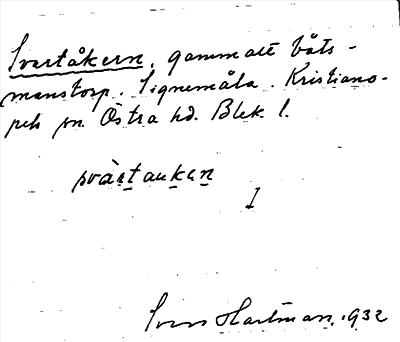 Svartåkern, gammalt båts-
manstorp. Signemåla. Kristiano-
pels sn Östra hd. Blek l.
svàrtaukạn
I
Sven Hartman. 1932